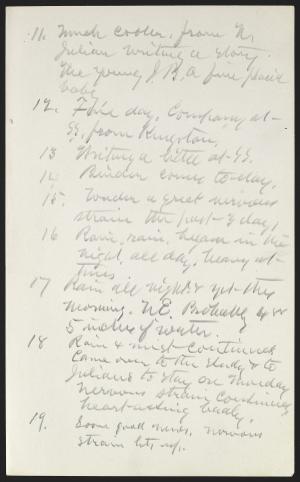 11. Much cooler, from N.
Julian writing a story.
The young J.B. a fine placid
babe
12. Fine day. Company at
S.S. from Kingston.
13 Writing a little at S.S.
14 Binder comes to-day.
15. Under a great nervous
strain the past 4 days,
16 Rain, rain, began in the
night, all day, heavy at
times
17 Rain all night & yet this
morning. N.E. Probably 4 or
5 inches of water.
18 Rain & mist continued
Came over to the Study & to
Julians to stay on Monday
nervous strain continues
heart-acting badly.
19. Some good news. nervous
strain lets up.